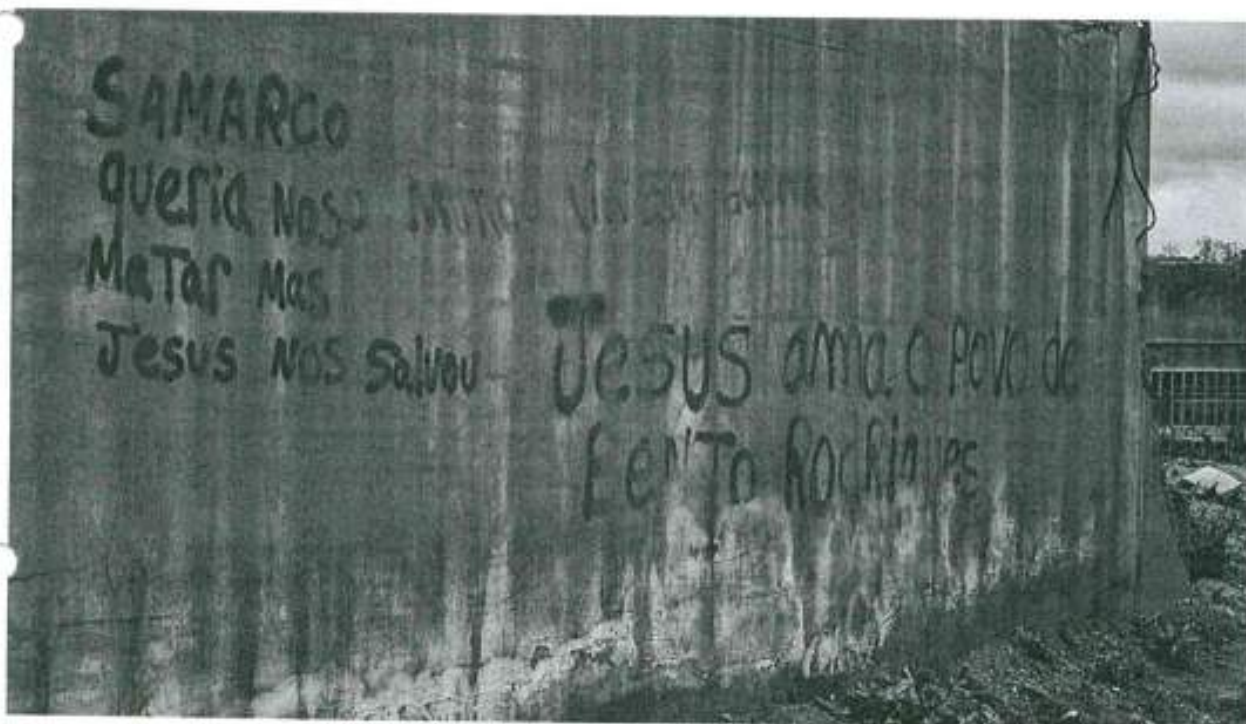 SAMARCO
queria Nos
MaTar Mas
Jesus Nos Salvou
Jesus ama o Povo de
BenTo RodRigues